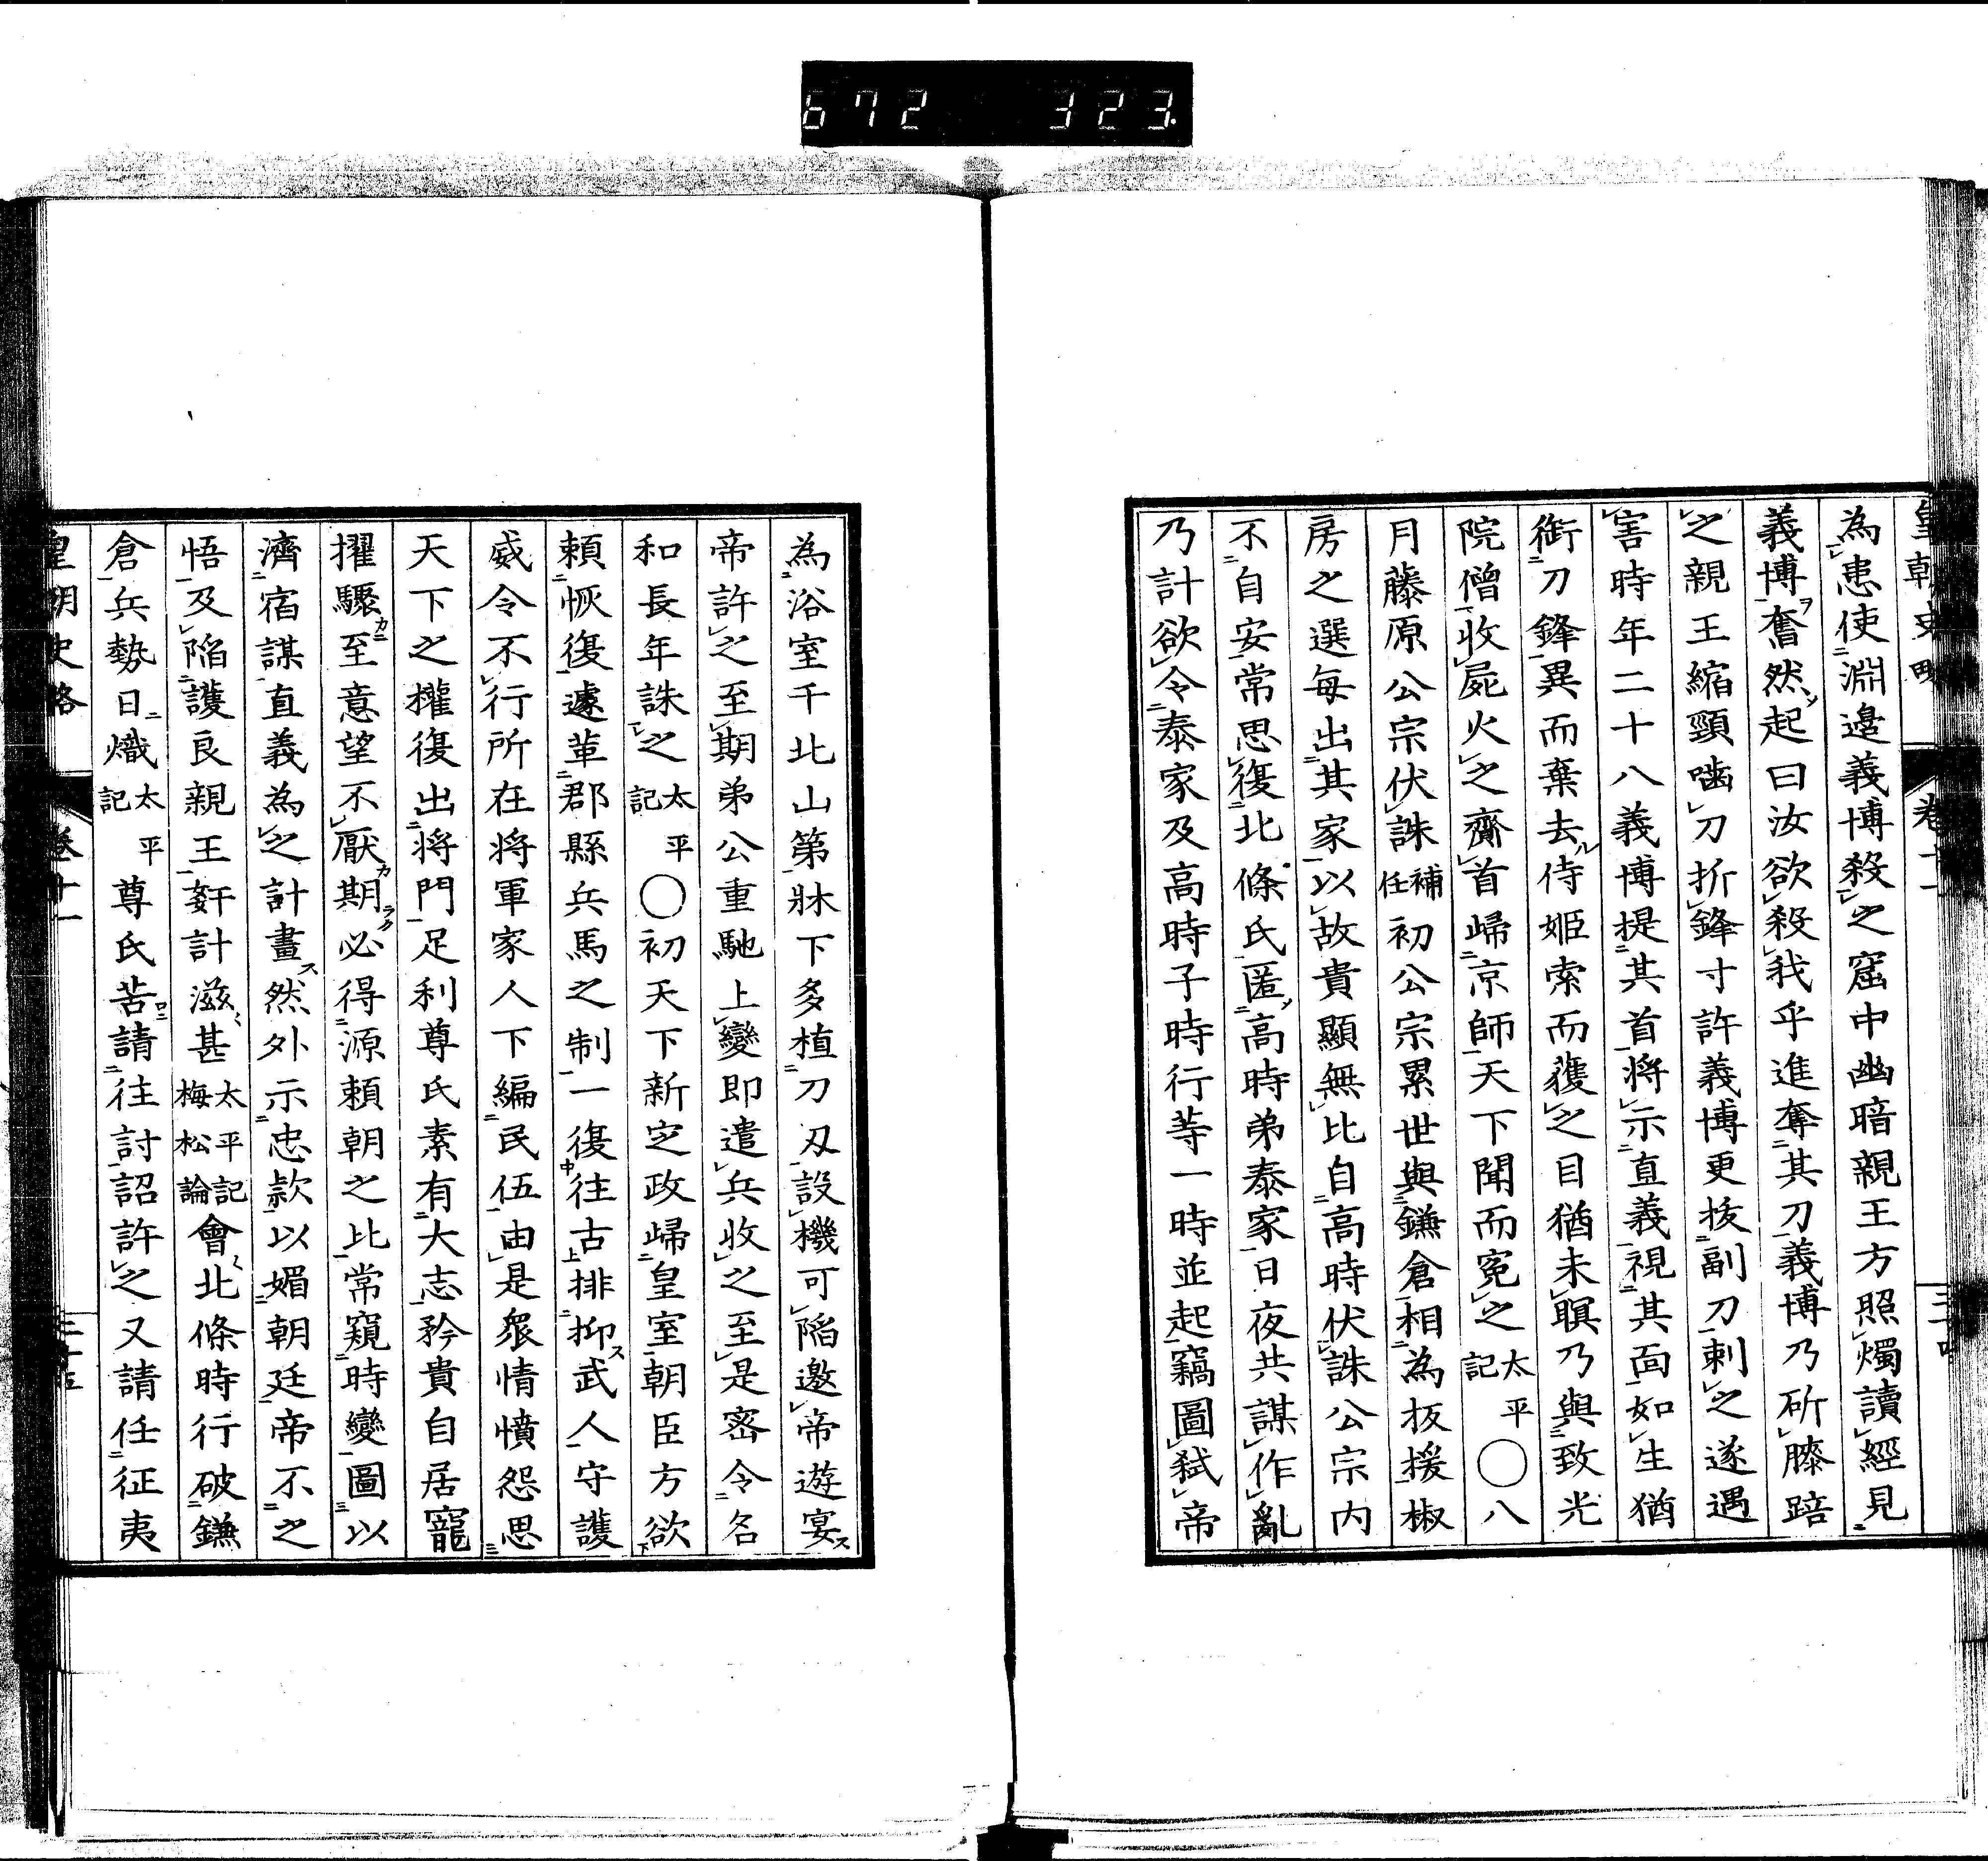 672 323
皇朝史略 卷十一
為患使淵邉義博殺之窟中幽暗親王方照燭讀經見
義博奮然起曰汝欲殺我乎進奪其刀義博乃斫膝踣
之親王縮頸嚙刀折鋒寸許義博更拔副刀刺之遂遇
害時年二十八義博提其首將示直義視其面如生猶
銜刀鋒異而棄去侍姬索而獲之目猶未瞑乃與致光
院僧收屍火之齎首歸京師天下聞而寃之太平記〇八
月藤原公宗伏誅補任初公宗累世與鎌倉相為扳援椒
房之選每出其家以故貴顯無比自高時伏誅公宗内
不自安常思復北條氏匿高時弟泰家日夜共謀作亂
乃計欲令泰家及高時子時行等一時並起竊圖弑帝
為浴室于北山第牀下多植刀刄設機可陷邀帝遊宴
帝許之至期弟公重馳上變即遣兵收之至是密令名
和長年誅之太平記〇初天下新定政歸皇室朝臣方欲
頼恢復遽革郡縣兵馬之制一復往古排抑武人守護
威令不行所在將軍家人下編民伍由是衆情憤怨思
天下之權復出將門足利尊氏素有大志矜貴自居寵
擢驟至意望不厭期必得源頼朝之比常窺時變圖以
濟宿謀直義為之計畫然外示忠款以媚朝廷帝不之
悟及陷護良親王姧計滋甚太平記梅松論會北條時行破鎌
倉兵勢日熾太平記尊氏苦請往討詔許之又請任征夷
皇朝史略 卷十一 三十五